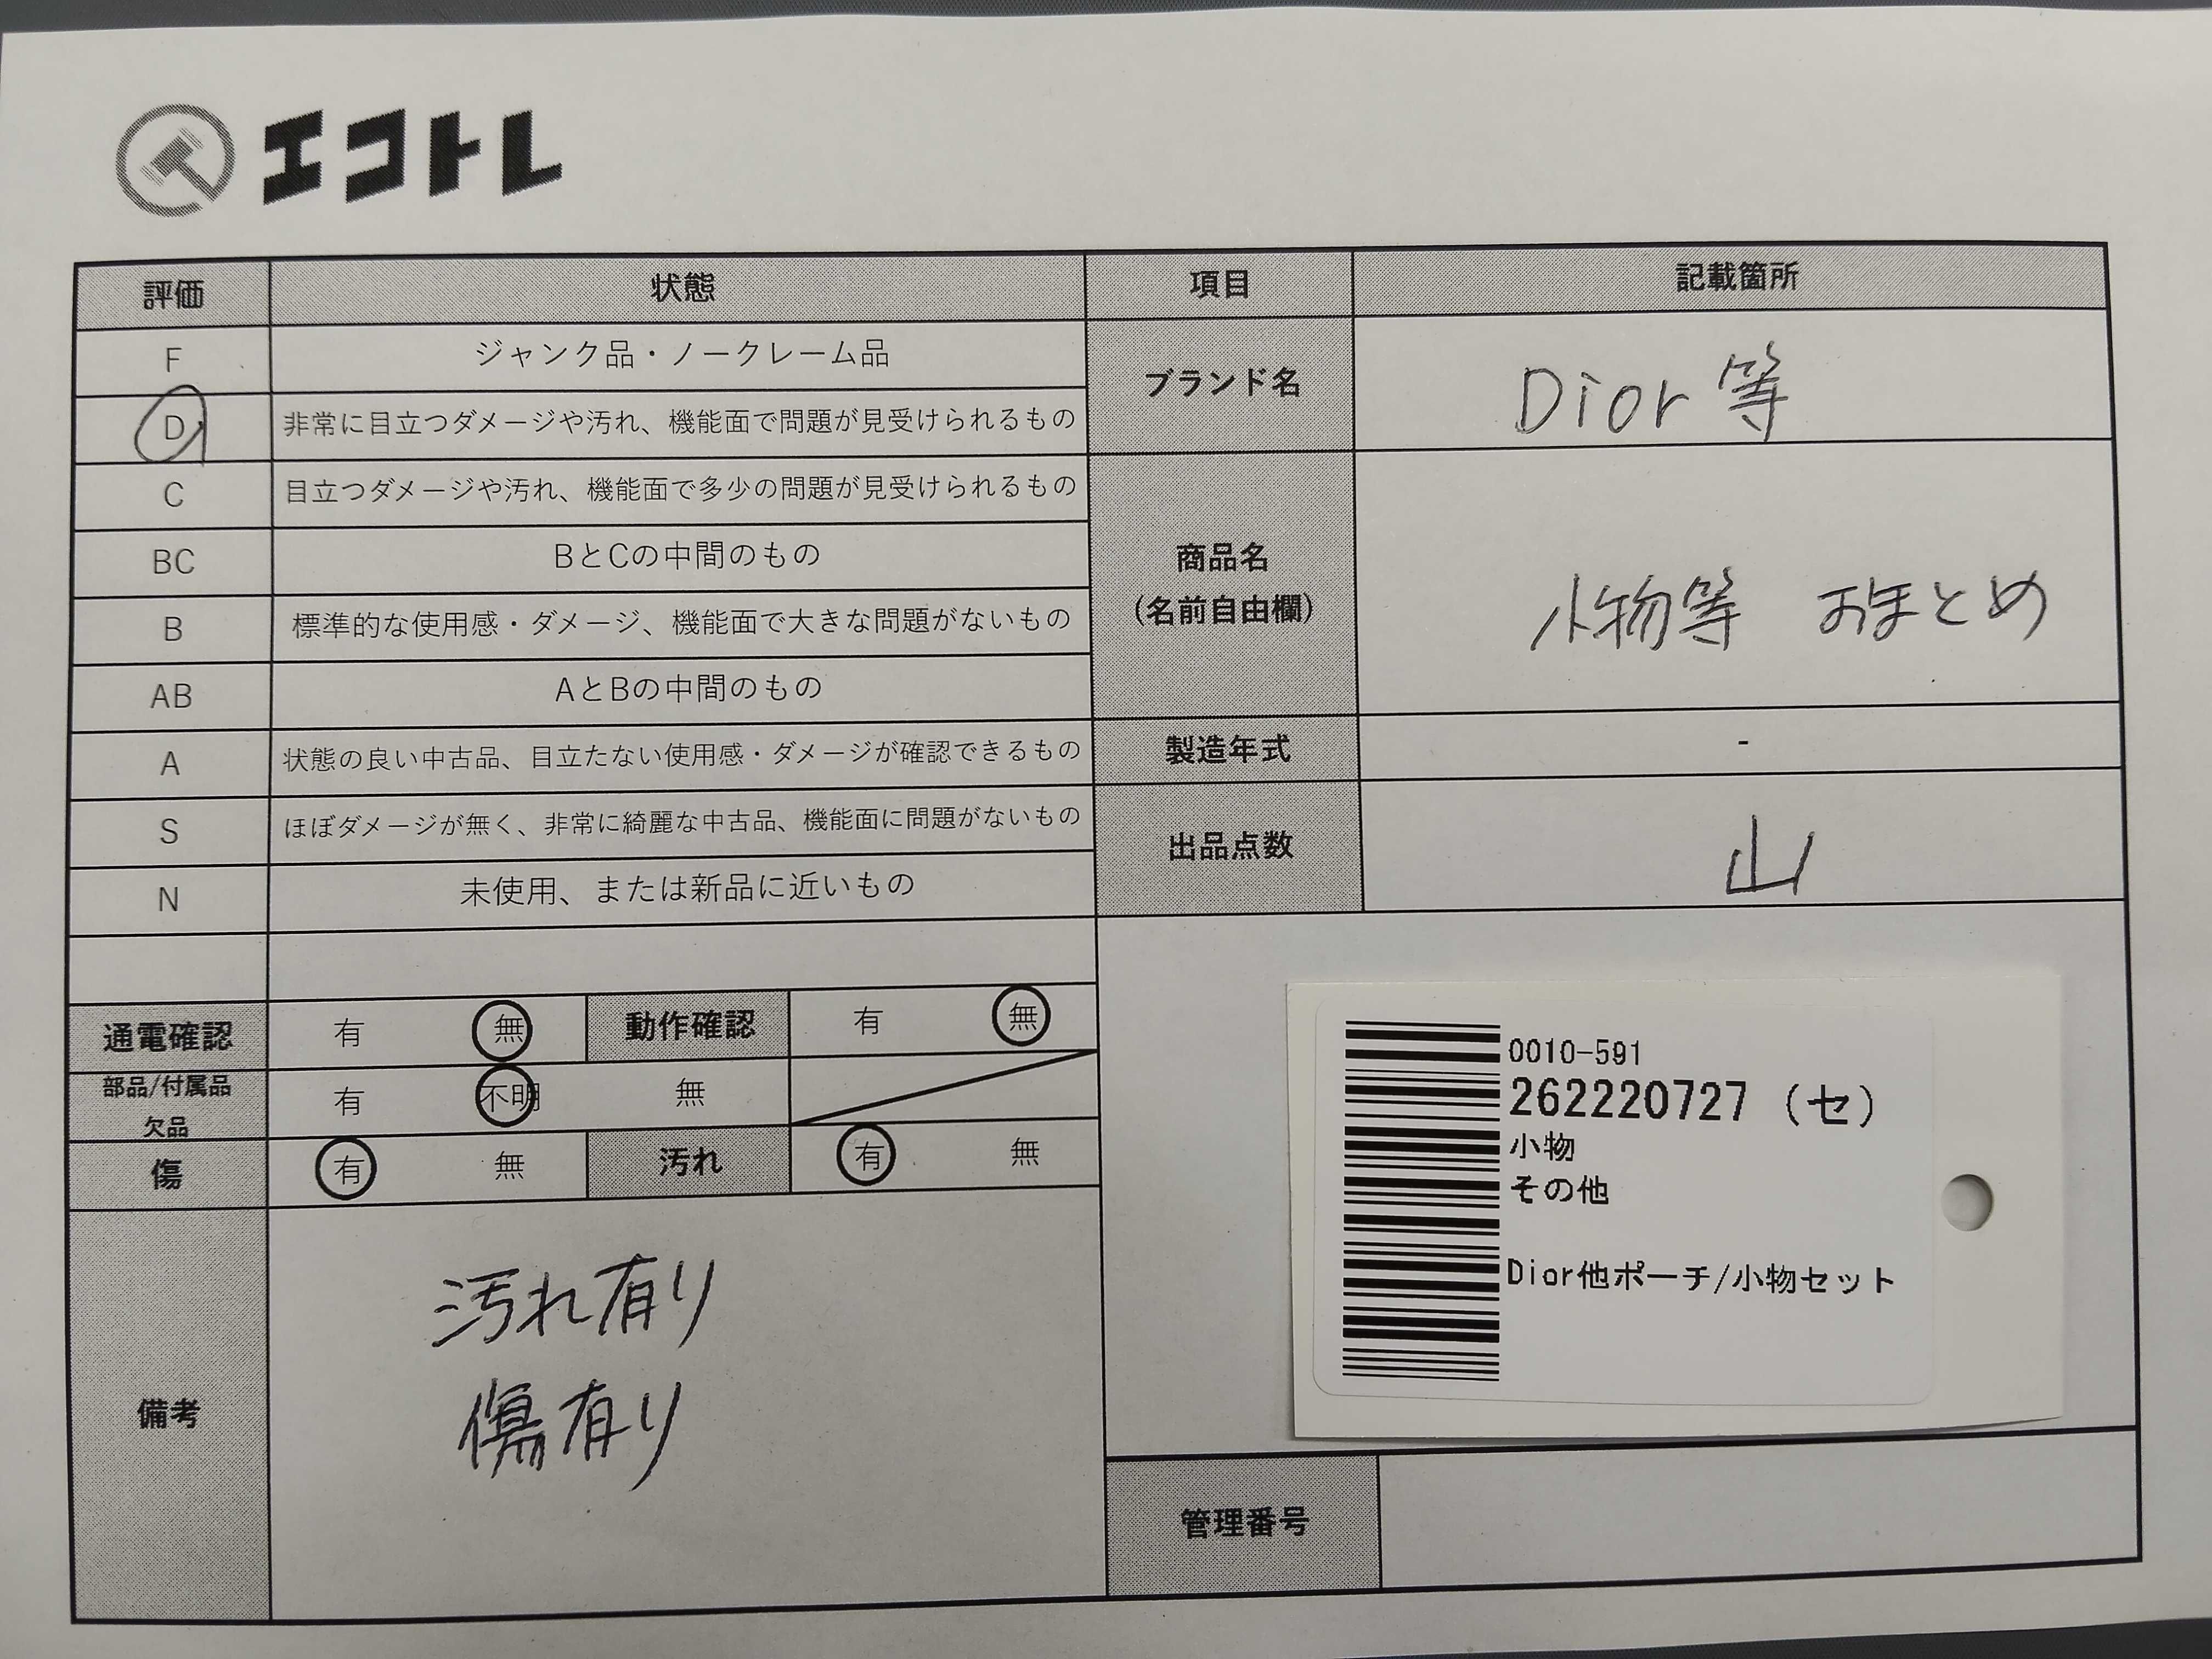 エコトレ
評価 状態 項目 記載箇所
F ジャンク品・ノークレーム品
D 非常に目立つダメージや汚れ、機能面で問題が見受けられるもの
ブランド名 Dior 等
C 目立つダメージや汚れ、機能面で多少の問題が見受けられるもの
BC BとCの中間のもの
商品名
(名前自由欄)
小物等 おまとめ
B 標準的な使用感・ダメージ、機能面で大きな問題がないもの
AB AとBの中間のもの
A 状態の良い中古品、目立たない使用感・ダメージが確認できるもの
製造年式 -
S ほぼダメージが無く、非常に綺麗な中古品、機能面に問題がないもの
出品点数 山
N 未使用、または新品に近いもの
通電確認 有 無 動作確認 有 無
部品/付属品
欠品
有 不明 無
傷 有 無 汚れ 有 無
備考
汚れ有り
傷有り
0010-591
262220727 (セ)
小物
その他
Dior他ポーチ/小物セット
管理番号